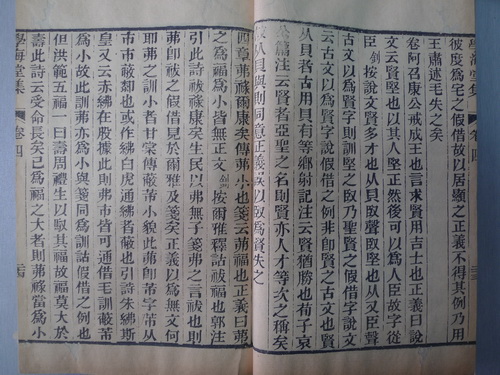 學海堂集 卷四
彼度為宅之假借故以居顯之正義不得其例乃用
王肅述毛失之矣
卷阿召康公戒成王也言求賢用吉士也正義曰說
文云賢堅也以其人堅正然後可以為人臣故字從
臤按說文賢多才也从貝臤聲臤堅也从又臣聲
古文以為賢字則訓堅之臤乃聲賢之假借字說文
云古文以為賢字說假借之例非卽賢之古文也賢
从貝者古用貝有等鄉射記注云賢猶勝也荀子哀
公篇注云賢者亞聖之名則賢亦人才等次之稱矣
故从貝與則同意正義誤以臤為賢失之
四章茀祿爾康矣傳茀小也箋云茀福也正義曰茀
之為福為小皆無正文按爾雅釋詁祓福也郭注
引此詩祓祿康矣生民以弗無子箋弗之言祓也則
茀卽祓之假借見於爾雅及箋矣正義以為無文何
耶茀之訓小者甘棠傳蔽芾小貌此茀卽芾字芾从
市市韍也或作紼白虎通紼者蔽也引詩朱紼斯
皇又云赤紼在股據此則茀市皆可通借毛訓蔽芾
為小故此訓茀亦為小與箋同為訓詁假借之例也
但洪範五福一曰壽周禮生以馭其福故福莫大於
壽此詩云受命長矣已為福之大者則茀祿當為小
學海堂集 卷四